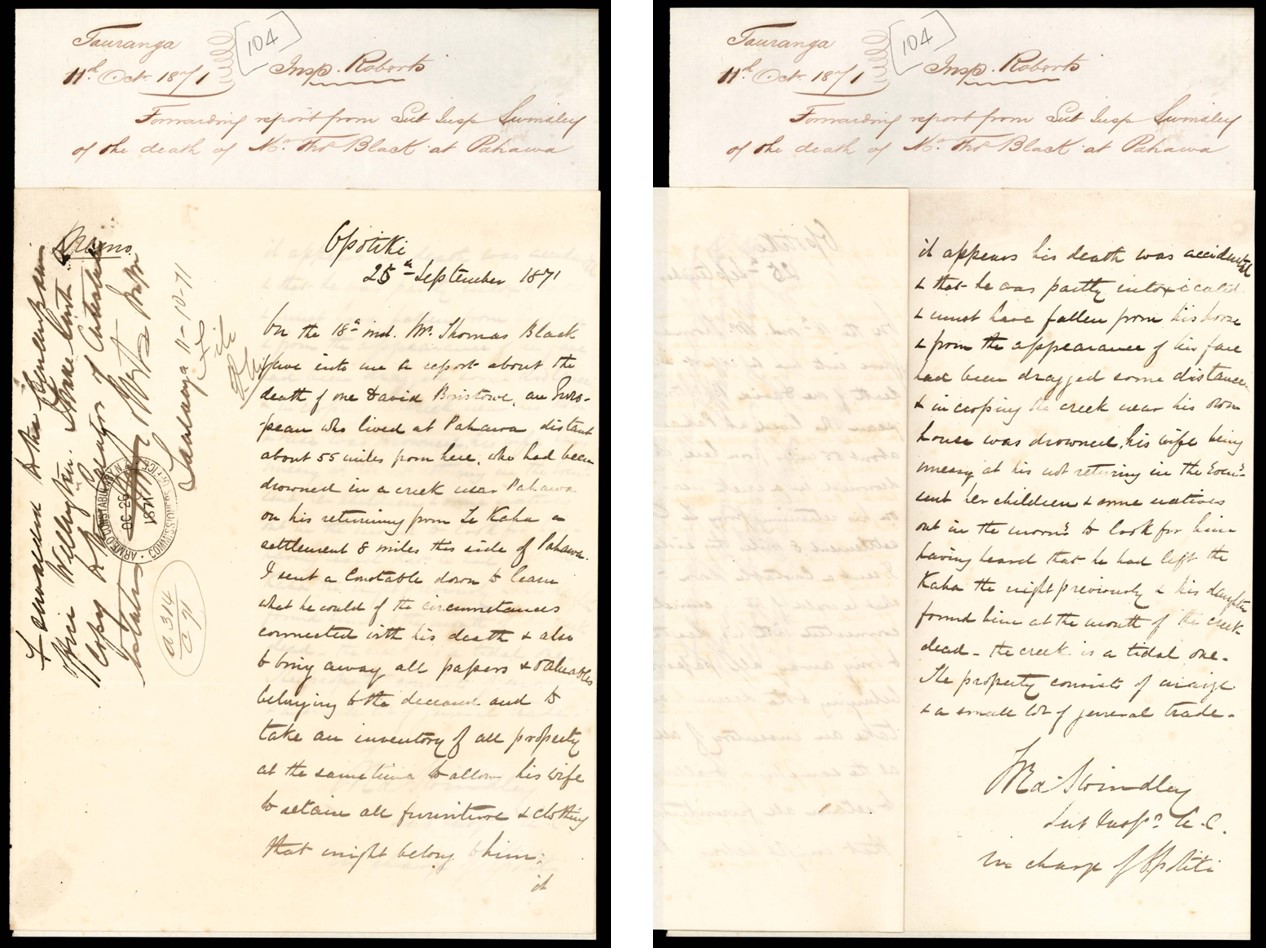 Tauranga
11th Oct 1871
[104]
Insp. Roberts
Forwarding report from Sub Insp Swindley
of the death of Mr. Thos Black at Pahawa
Opotiki
25th September 1871
On the 18th inst. Mr. Thomas Black
gave into me a report about the
death of one David Bristowe, an Euro-
pean who lived at Pahawa distant
about 55 miles from here, who had been
drowned in a creek near Pahawa
on his returning from Te Kaha a
settlement 8 miles this side of Pahawa.
I sent a Constable down to learn
what he could of the circumstances
connected with his death & also
to bring away all papers & valuables
belonging to the deceased and to
take an inventory of all property
at the same time to allow his wife
to retain all furniture & clothing
that might belong to him;
it
Memo
Forwarded to the
Office Wellington.
Copy to Registrar of Intestate
Estates
Tauranga 11-10-71
File
COMMISSIONERS OFFICE
ARMED CONSTABULARY N.Z.
OC 26
1871
A 314
C 71
Tauranga
11th Oct 1871
[104]
Insp. Roberts
Forwarding report from Sub Insp Swindley
of the death of Mr. Thos Black at Pahawa
it appears his death was accidental
& that he was partly intoxicated
& must have fallen from his horse
& from the appearance of his face
had been dragged some distance
& in crossing the creek near his own
house was drowned, his wife being
uneasy at his not returning in the Eveng.
sent her children & some natives
out in the morng to look for him
having heard that he had left the
Kaha the night previously & his daughter
found him at the mouth of the creek
dead - the creek is a tidal one.
The property consists of maize
& a small lot of general trade -
Swindley
Sub Inspr. A.C.
in charge Opotiki